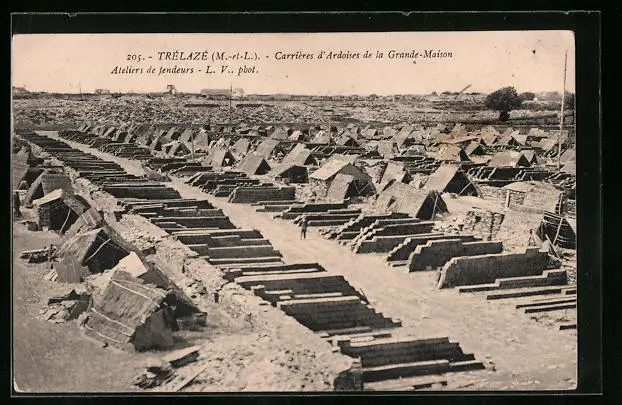 205. - TRÉLAZÉ (M.-et-L.). - Carrières d'Ardoises de la Grande-Maison
Ateliers de fendeurs - L. V., phot.